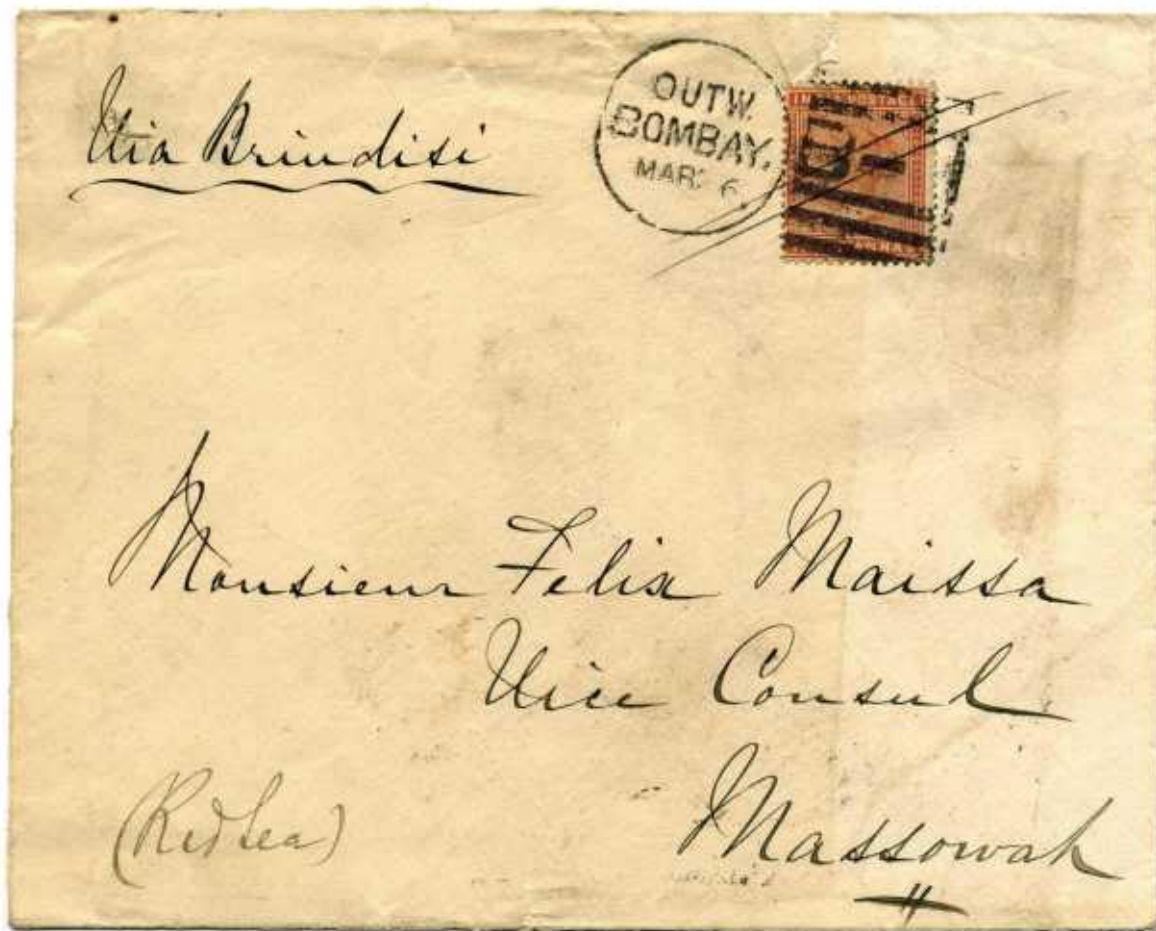 Via Brindisi
OUTW.
BOMBAY.
MAR: 6
B
1
Monsieur Felix Maissa
Vice Consul
(Red Sea)
Massowah